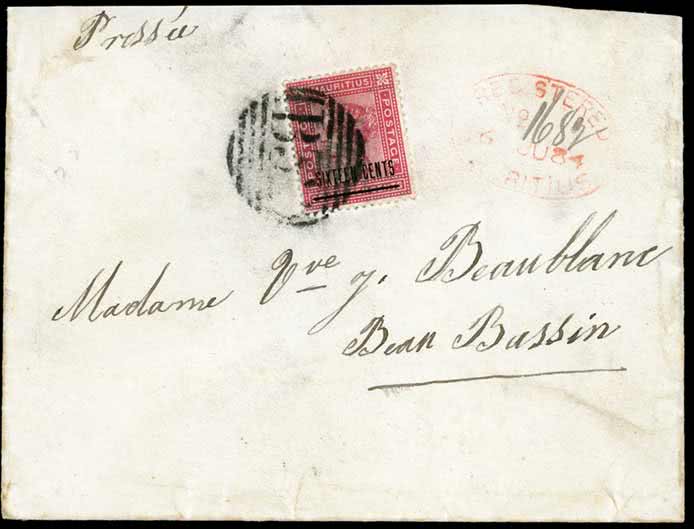 Pressée
MAURITIUS
POSTAGE
SIXTEEN CENTS
REGISTERED
No 1682
JU 84
MAURITIUS
Madame Vve J. Beaublanc
Beau Bassin